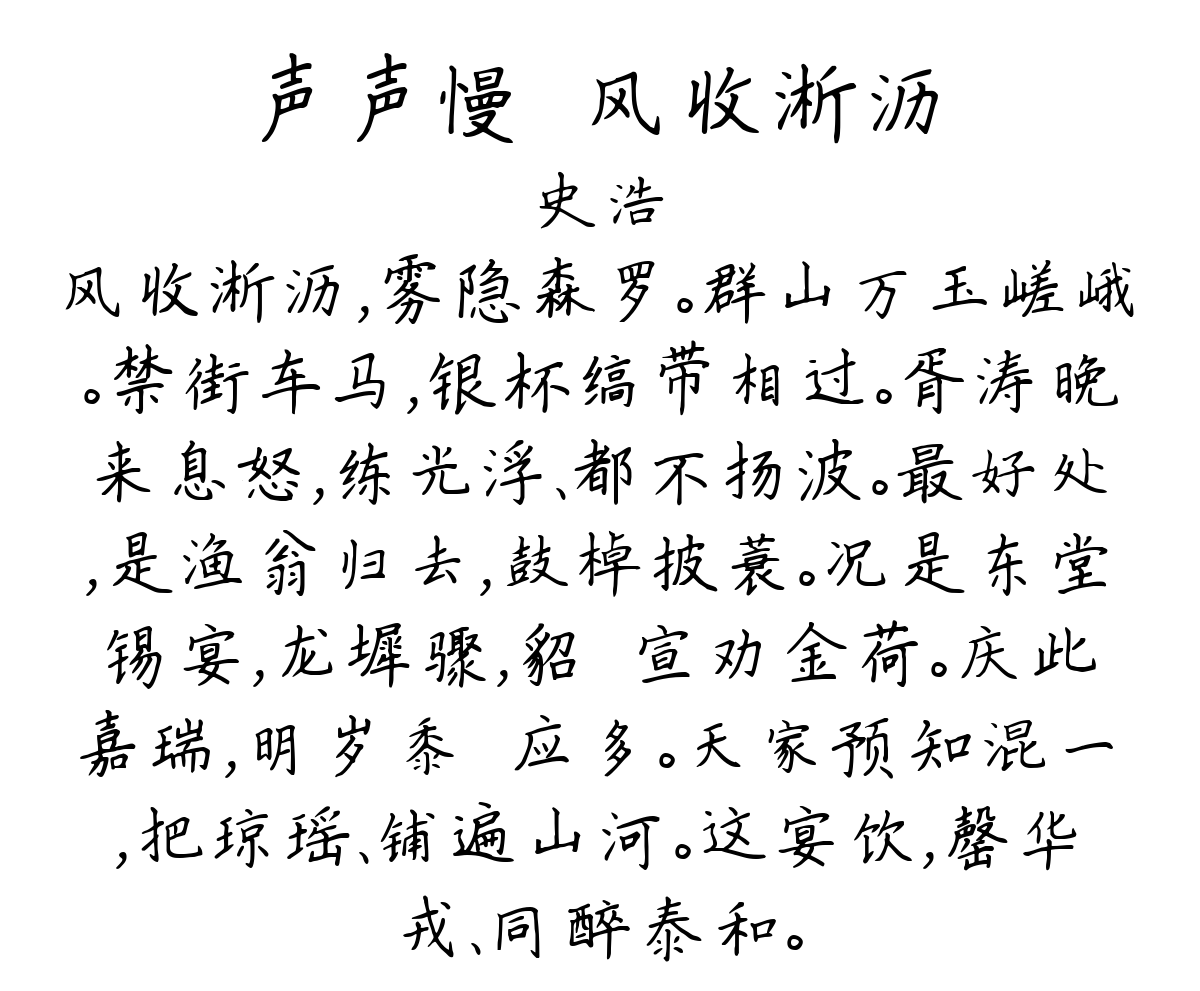 声声慢 风收淅沥
史浩
风收淅沥,雾隐森罗。群山万玉嵯峨
。禁街车马,银杯缟带相过。胥涛晚
来息怒,练光浮、都不扬波。最好处
,是渔翁归去,鼓棹披蓑。况是东堂
锡宴,龙墀骤,貂 宣劝金荷。庆此
嘉瑞,明岁黍 应多。天家预知混一
,把琼瑶、铺遍山河。这宴饮,罄华
戎、同醉泰和。